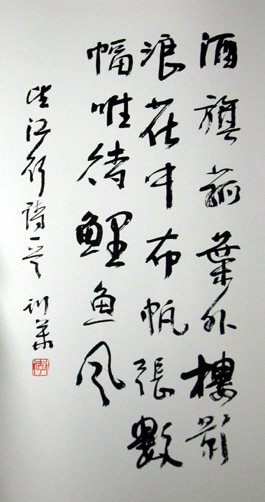 酒旗菰葉外樓影
浪花中布帆張數
幅唯待鯉魚風
江行詩一首